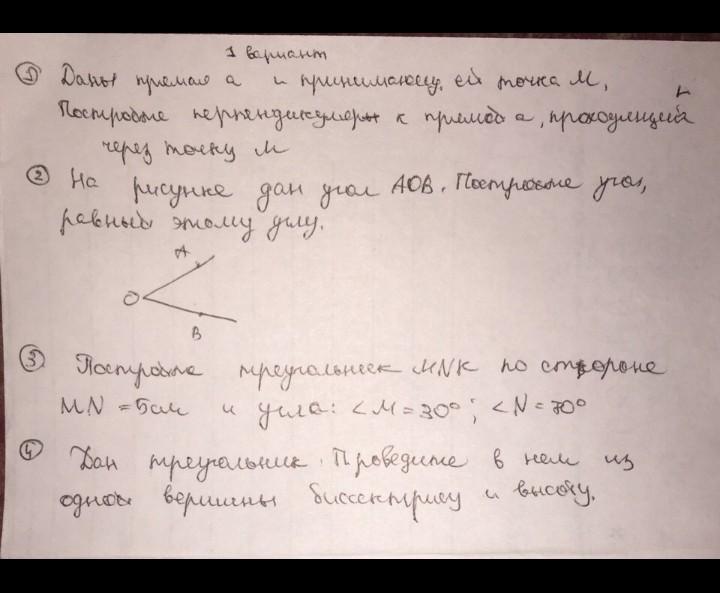 1 вариант
① Даны прямая а и принимающу. ей точка М,
Постройте перпендикуляр к прямой а, проходящий
через точку М
② На рисунке дан угол АОВ. Постройте угол,
равный этому углу.
А
О
В
③ Постройте треугольник MNK по стороне
MN = 5 см и угла: ∠M = 30°; ∠N = 70°
④ Дан треугольник. Проведите в нем из
одной вершины биссектрису и высоту.